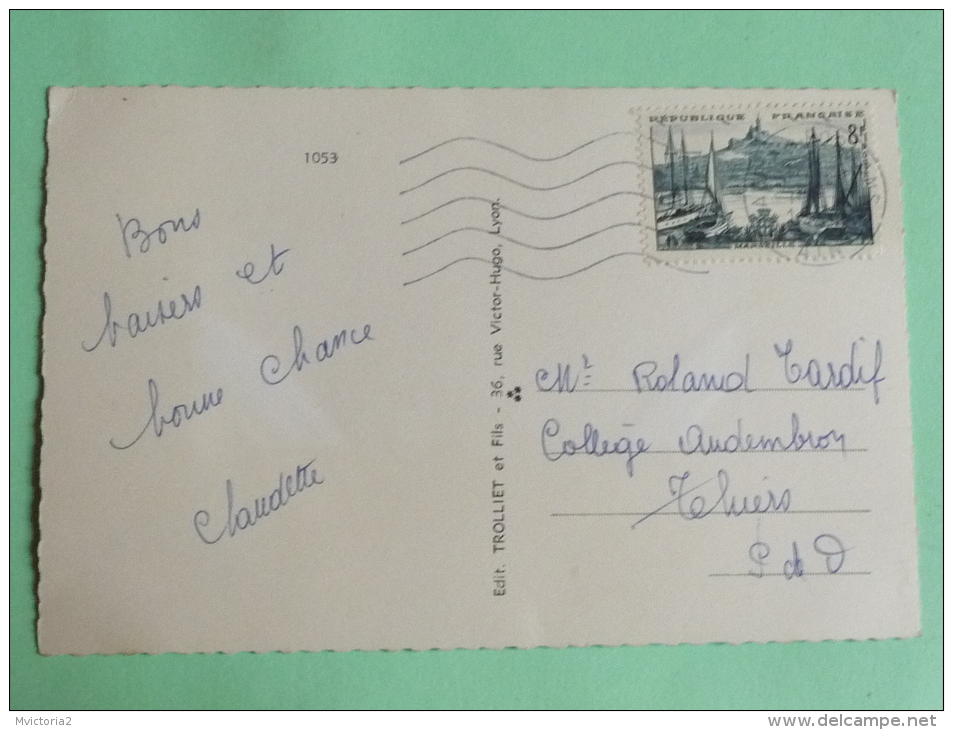 1053
Bons
baisers et
bonne chance
Claudette
Edit. TROLLIET et Fils - 36, rue Victor-Hugo, Lyon.
RÉPUBLIQUE FRANÇAISE
8f
MARSEILLE
Mr Roland Tardif
Collège Audembron
Thiers
P d D
Mvictoria2
www.delcampe.net